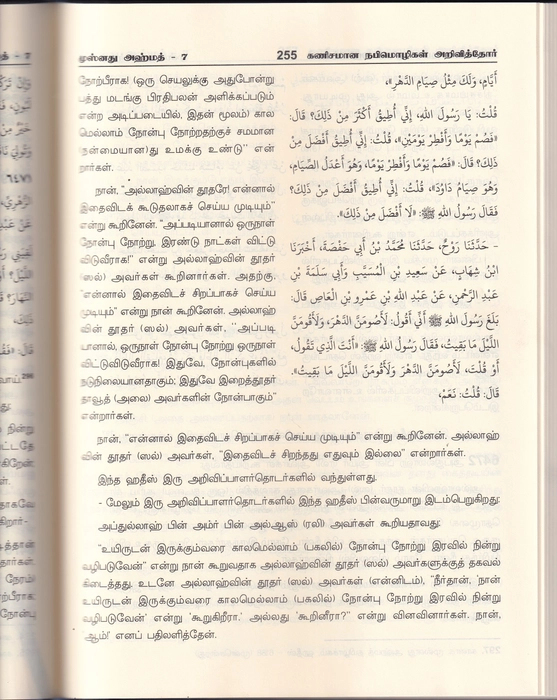 முஸ்னது அஹ்மத் - 7
255 கணிசமான நபிமொழிகள் அறிவித்தோர்
நோற்பீராக! (ஒரு செயலுக்கு அதுபோன்று
பத்து மடங்கு பிரதிபலன் அளிக்கப்படும்
என்ற அடிப்படையில், இதன் மூலம்) கால
மெல்லாம் நோன்பு நோற்றதற்குச் சமமான
நன்மையான)து உமக்கு உண்டு" என்
றார்கள்.
நான், "அல்லாஹ்வின் தூதரே! என்னால்
இதைவிடக் கூடுதலாகச் செய்ய முடியும்"
என்று கூறினேன். "அப்படியானால் ஒருநாள்
நோன்பு நோற்று, இரண்டு நாட்கள் விட்டு
விடுவீராக!" என்று அல்லாஹ்வின் தூதர்
(ஸல்) அவர்கள் கூறினார்கள். அதற்கு,
"என்னால் இதைவிடச் சிறப்பாகச் செய்ய
முடியும்" என்று நான் கூறினேன். அல்லாஹ்
வின் தூதர் (ஸல்) அவர்கள், "அப்படி
யானால், ஒருநாள் நோன்பு நோற்று ஒருநாள்
விட்டுவிடுவீராக! இதுவே, நோன்புகளில்
நடுநிலையானதாகும்; இதுவே இறைத்தூதர்
தாவூத் (அலை) அவர்களின் நோன்பாகும்"
என்றார்கள்.
أَيَّامٍ، وَلَكَ مِثْلُ صِيَامِ الدَّهْرِ»،
قُلْتُ: يَا رَسُولَ اللهِ، إِنِّي أُطِيقُ أَكْثَرَ مِنْ ذَلِكَ؟ قَالَ:
«فَصُمْ يَوْمًا وَأَفْطِرْ يَوْمَيْنِ»، قُلْتُ: إِنِّي أُطِيقُ أَفْضَلَ مِنْ
ذَلِكَ؟ قَالَ: «فَصُمْ يَوْمًا وَأَفْطِرْ يَوْمًا، وَهُوَ أَعْدَلُ الصِّيَامِ،
وَهُوَ صِيَامُ دَاوُدَ»، قُلْتُ: إِنِّي أُطِيقُ أَفْضَلَ مِنْ ذَلِكَ؟
فَقَالَ رَسُولُ اللهِ ﷺ: «لَا أَفْضَلَ مِنْ ذَلِكَ».
- حَدَّثَنَا رَوْحٌ، حَدَّثَنَا مُحَمَّدُ بْنُ أَبِي حَفْصَةَ، أَخْبَرَنَا
ابْنُ شِهَابٍ، عَنْ سَعِيدِ بْنِ الْمُسَيَّبِ وَأَبِي سَلَمَةَ بْنِ
عَبْدِ الرَّحْمَنِ، عَنْ عَبْدِ اللهِ بْنِ عَمْرِو بْنِ الْعَاصِ قَالَ:
بَلَغَ رَسُولَ اللهِ ﷺ أَنِّي أَقُولُ: لَأَصُومَنَّ الدَّهْرَ، وَلَأَقُومَنَّ
اللَّيْلَ مَا بَقِيتُ، فَقَالَ رَسُولُ اللهِ ﷺ: «أَنْتَ الَّذِي تَقُولُ،
أَوْ قُلْتَ، لَأَصُومَنَّ الدَّهْرَ وَلَأَقُومَنَّ اللَّيْلَ مَا بَقِيتُ».
قَالَ: قُلْتُ: نَعَمْ،
நான், "என்னால் இதைவிடச் சிறப்பாகச் செய்ய முடியும்" என்று கூறினேன். அல்லாஹ்
வின் தூதர் (ஸல்) அவர்கள், "இதைவிடச் சிறந்தது எதுவும் இல்லை" என்றார்கள்.
இந்த ஹதீஸ் இரு அறிவிப்பாளர்தொடர்களில் வந்துள்ளது.
- மேலும் இரு அறிவிப்பாளர்தொடர்களில் இந்த ஹதீஸ் பின்வருமாறு இடம்பெறுகிறது:
அப்துல்லாஹ் பின் அம்ர் பின் அல்ஆஸ் (ரலி) அவர்கள் கூறியதாவது:
"உயிருடன் இருக்கும்வரை காலமெல்லாம் (பகலில்) நோன்பு நோற்று இரவில் நின்று
வழிபடுவேன்" என்று நான் கூறுவதாக அல்லாஹ்வின் தூதர் (ஸல்) அவர்களுக்குத் தகவல்
கிடைத்தது. உடனே அல்லாஹ்வின் தூதர் (ஸல்) அவர்கள் (என்னிடம்), "நீர்தான், 'நான்
உயிருடன் இருக்கும்வரை காலமெல்லாம் (பகலில்) நோன்பு நோற்று இரவில் நின்று
வழிபடுவேன்' என்று 'கூறுகிறீரா,' அல்லது 'கூறினீரா?'" என்று வினவினார்கள். நான்,
'ஆம்!' எனப் பதிலளித்தேன்.